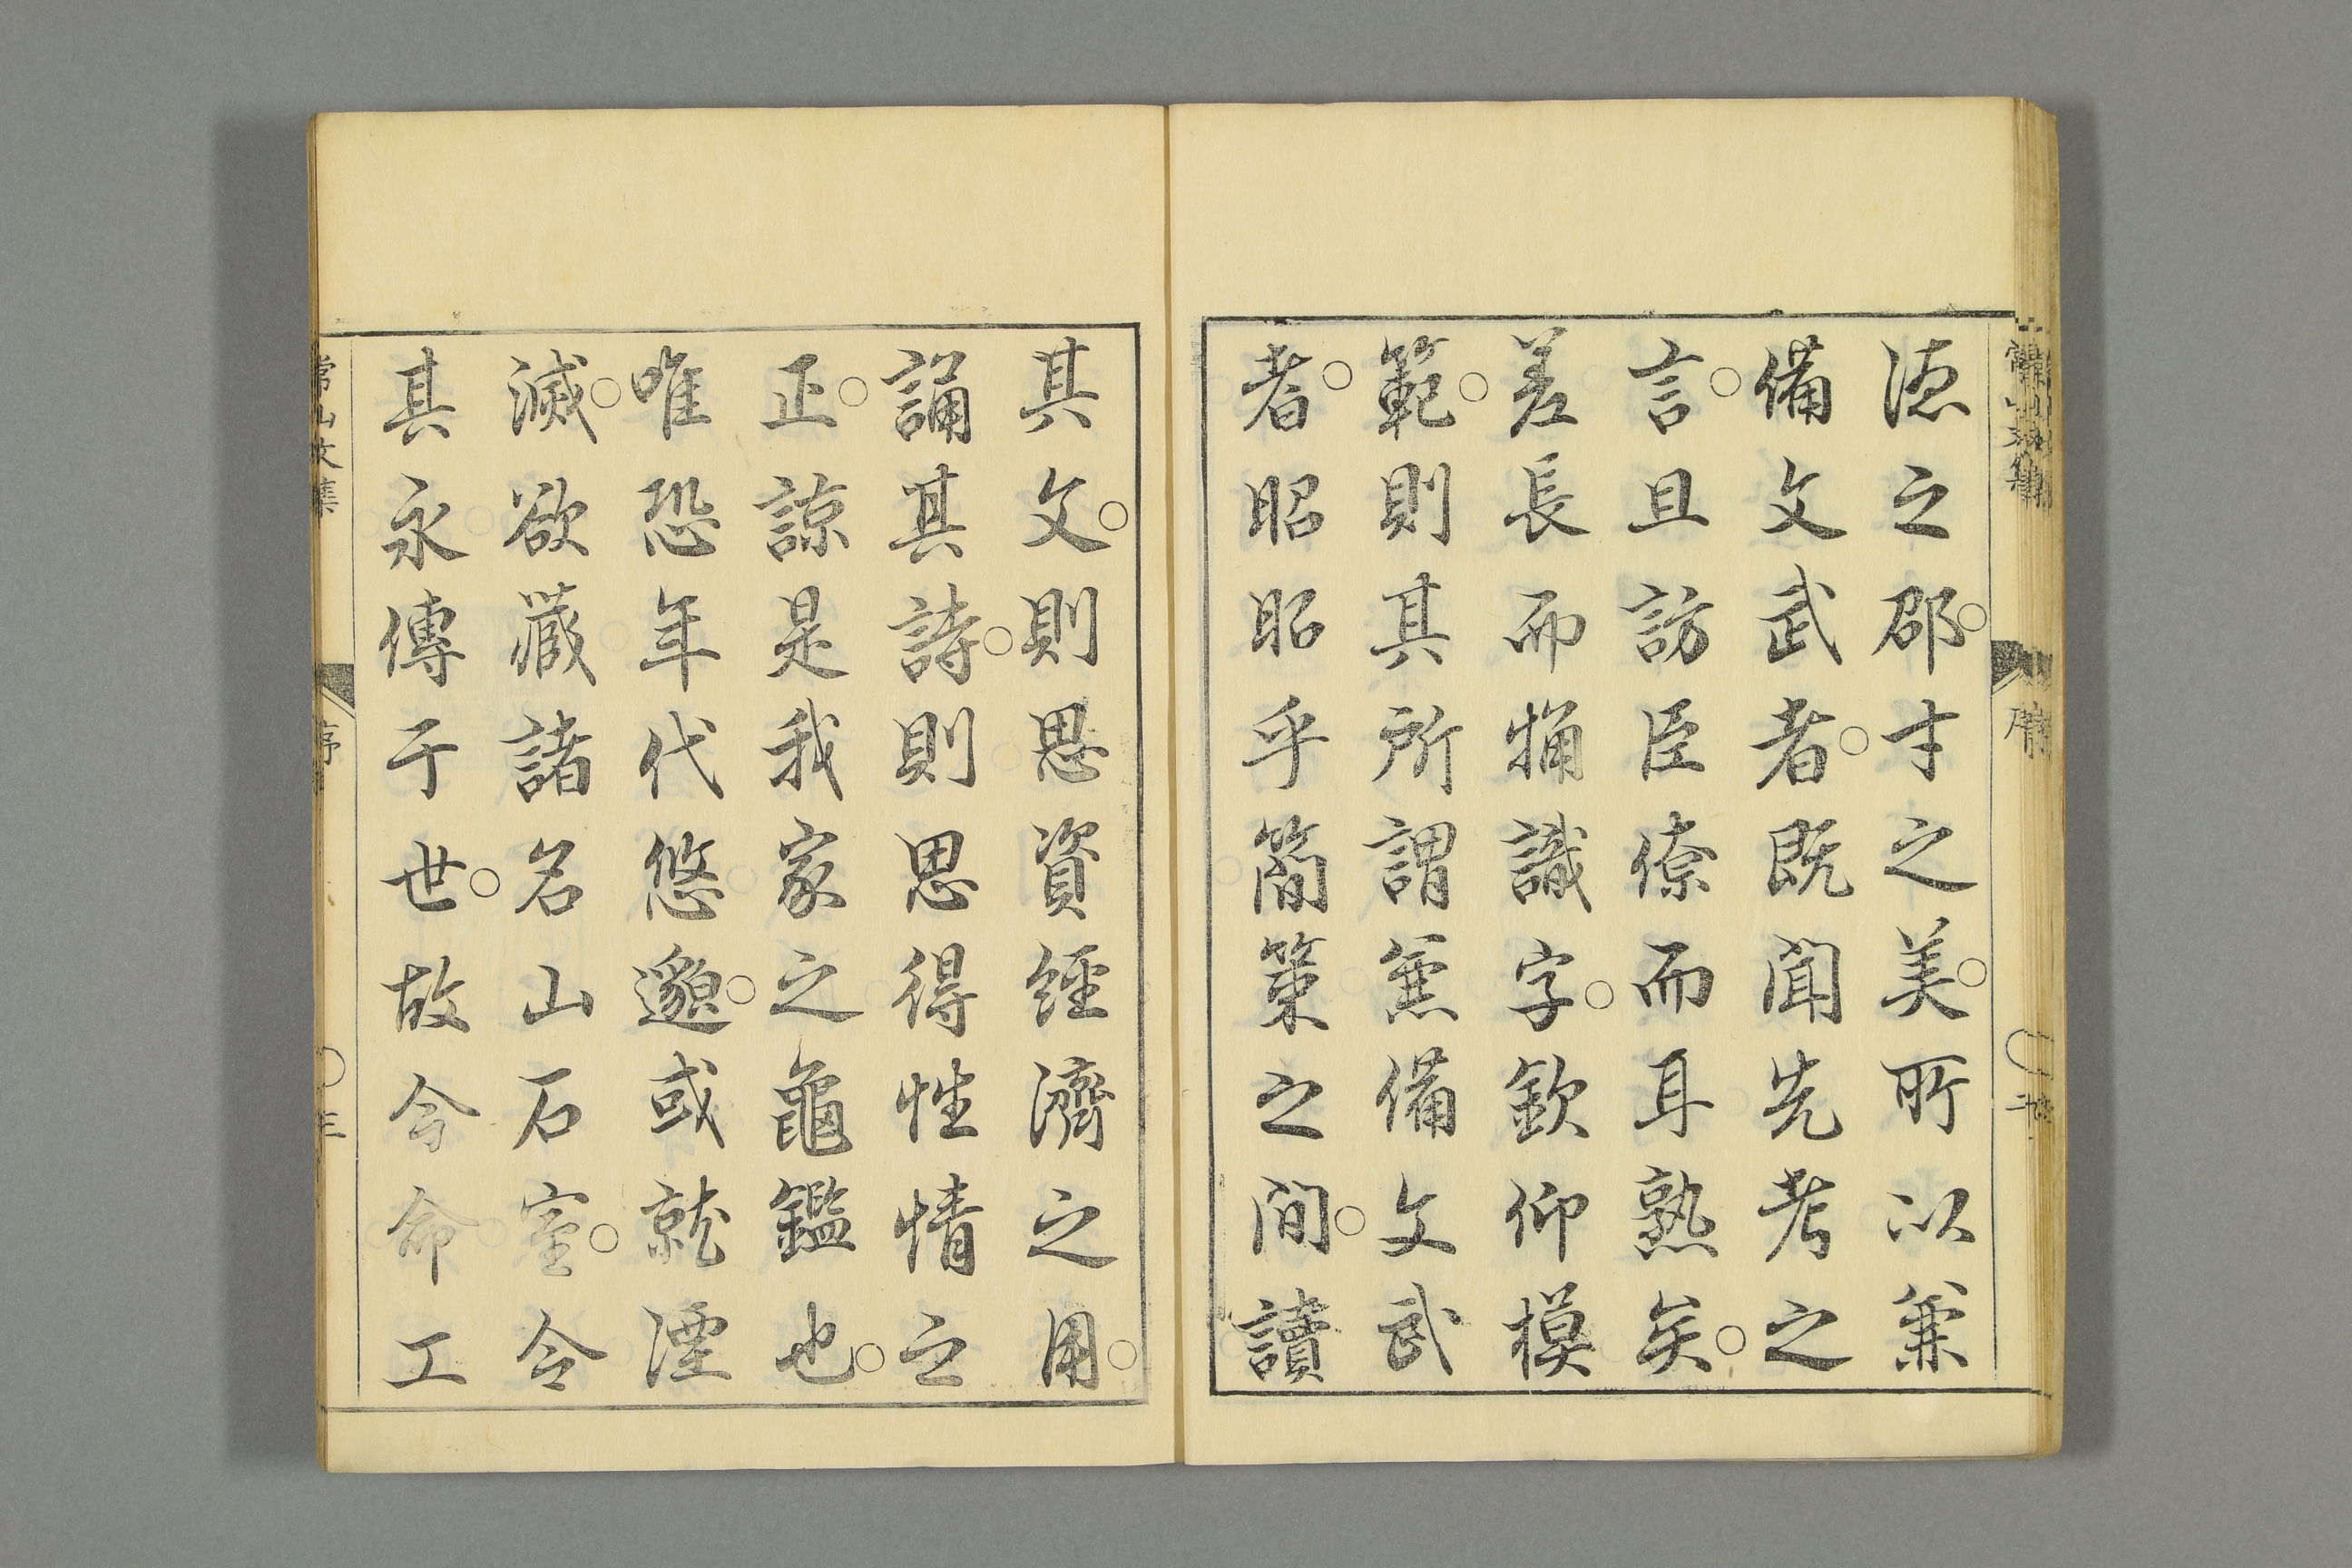 德之邵○才之美○所以兼
備文武者○既聞先考之
言○且訪臣僚而耳熟矣○
差長而觕識字○欽仰模
範○則其所謂兼備文武
者○昭昭乎簡策之間○讀
其文○則思資經濟之用○
誦其詩○則思得性情之
正○諒是我家之龜鑑也○
唯恐年代悠邈○或就湮
滅○欲藏諸名山石室○令
其永傳于世○故今命工
常山文集 序 ○三